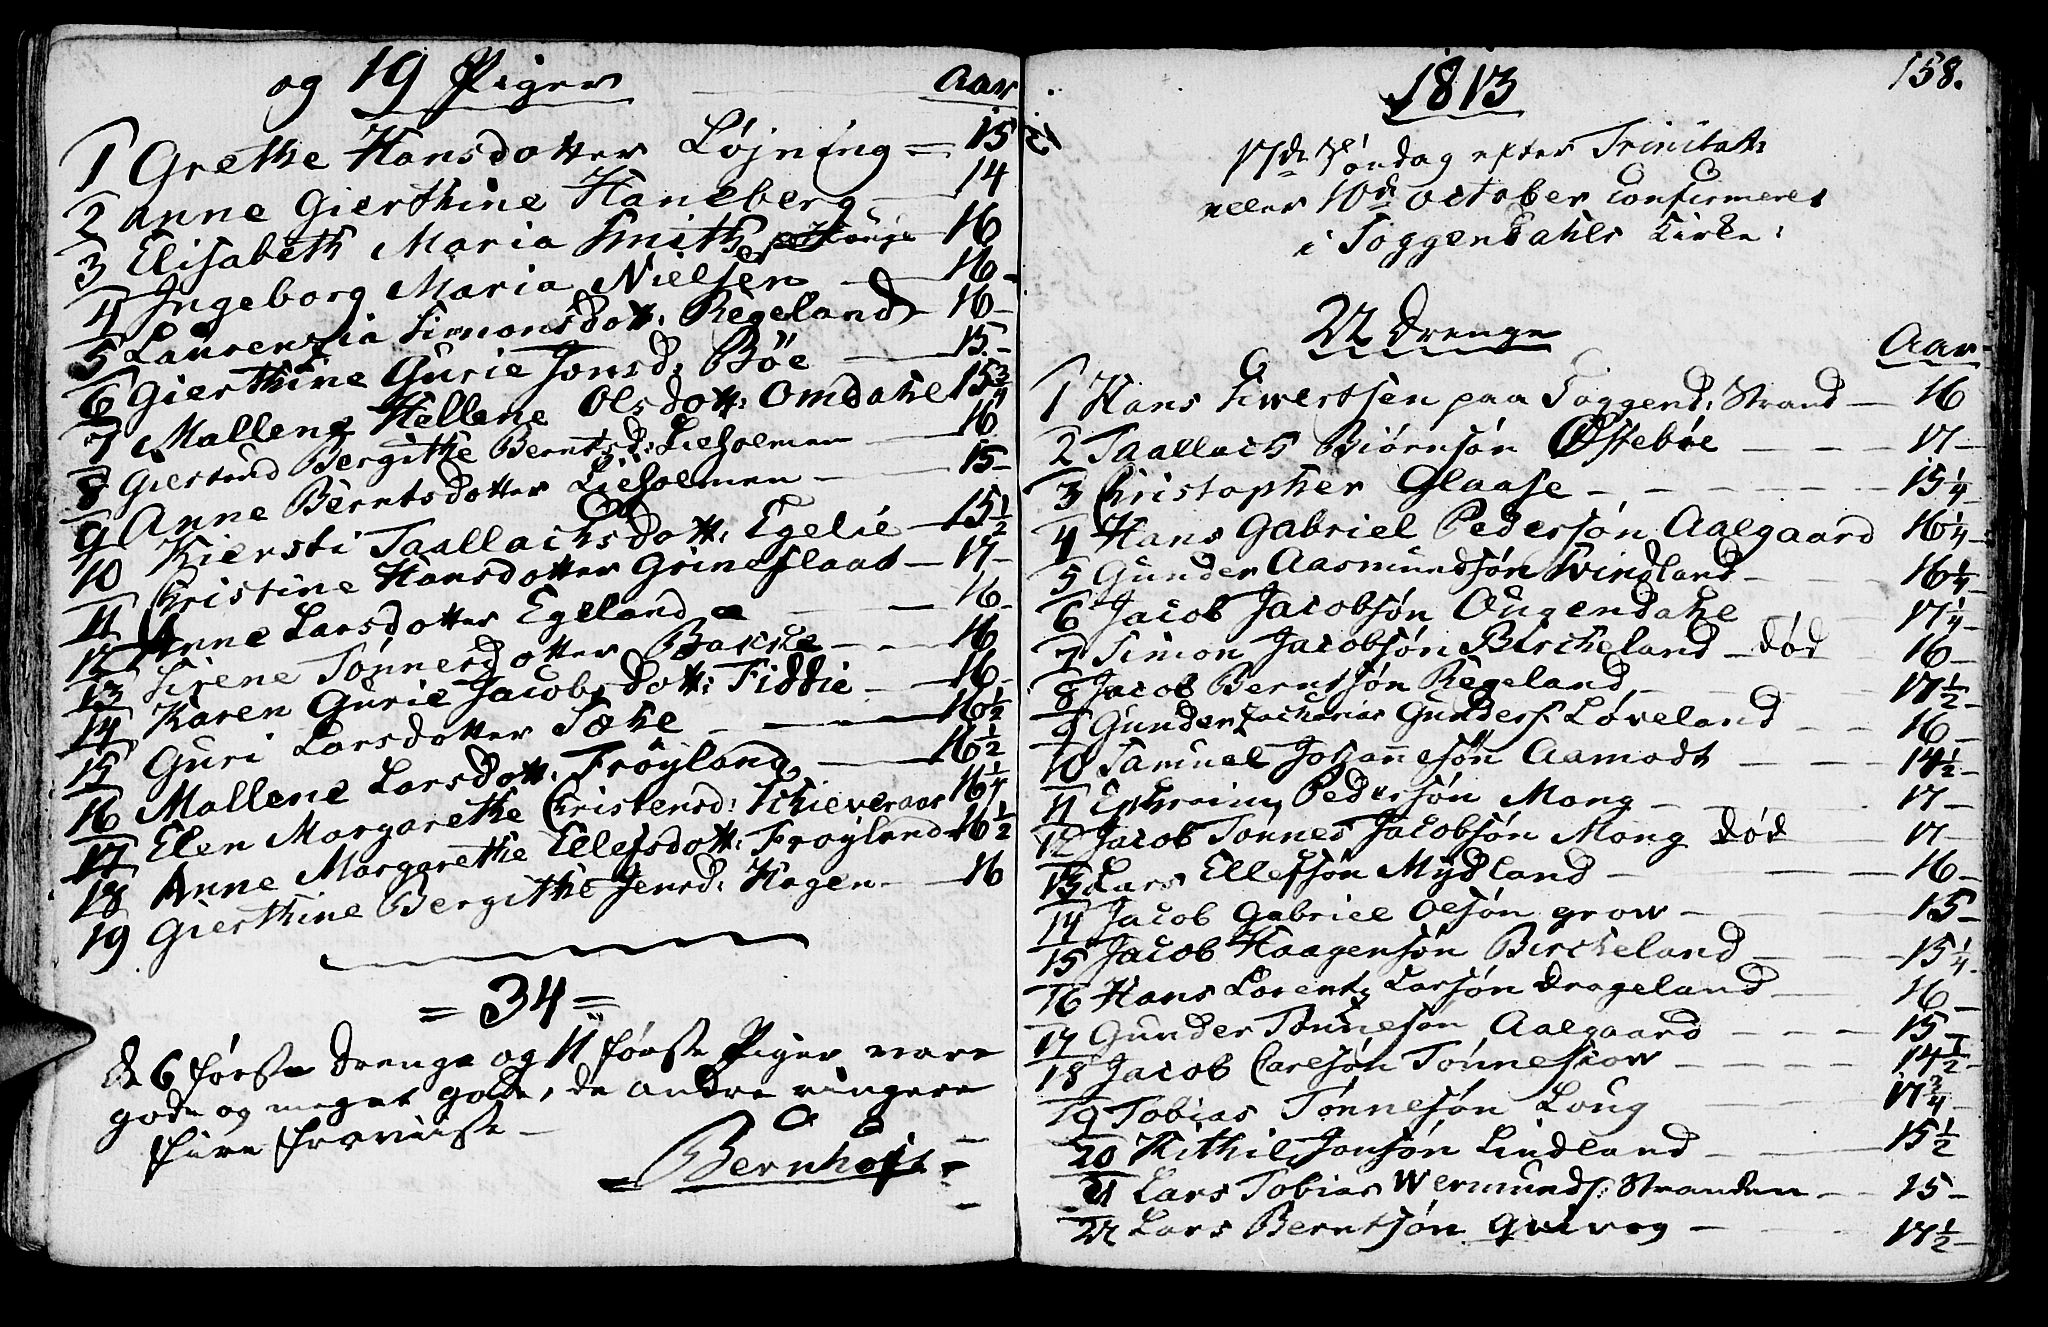 og 19 Piger
Aar
1 Grethe Hansdotter Løjning = 15
2 Anne Gierthine Haneberg — 14
3 Elisabeth Maria Smith 16
4 Ingeborg Maria Nielsen — 16 -
5 Laurenzia Simonsdott: Regeland — 16 -
6 Gierthine Gurie Jonsd: Böe — 15 -
7 Mallene Hellene Olsdott: Omdahl 15 3/4
8 Giertrud Bergithe Berntsd: Lieholmen — 16
9 Anne Berntsdotter Lieholmen — 15 -
10 Kiersti Taallachsdott: Egelie — 15 1/2
11 Christine Hansdotter Grineflaat — 17 -
12 Anne Larsdotter Egeland — 16 -
13 Sirene Tönnesdotter Bakke — 16
14 Karen Gurie Jacobsdott: Fiddie — 16 -
15 Guri Larsdotter — 16 1/2
16 Mallene Larsdott: Fröyland — 16 1/2
17 Elen Margarethe Christensd: Schieveraas 16 1/4
18 Anne Margarethe Ellefsdott: Frøyland 16 1/2
19 Gierthine Bergithe Jensd: Hagen — 16
= 34 =
de 6 første Drenge og 11 første Piger vare
gode og meget gode, de andre ringere

Bernhoft
158.
1813
17de Søndag efter Trinitat:
eller 10de October Confirmeret
i Soggendahls Kirke:
22 Drenge
Aar
1 Hans Sivertsen paa Soggend: Strand — 16
2 Taallach Biørnsøn Østebøe — 17 -
3 Christopher Glaase — 15 1/4
4 Hans Gabriel Pedersøn Aalgaard 16 1/4 -
5 Gunder Aasmundsøn Svindland — 16 1/4 -
6 Jacob Jacobsøn Ougendahl 17 1/4 -
7 Simon Jacobsøn Bircheland — død 16 -
8 Jacob Berntsøn Regeland — 17 1/2 -
9 Gunder Zacharias Gunders: Løveland — 16 -
10 Samuel Johannesøn Aamodt — 14 1/2 -
11 Ephraim Pedersøn Mong — 17 -
12 Jacob Tønnes Jacobsøn Mong død 17 -
13 Lars Ellefsøn Mydland — 16 -
14 Jacob Gabriel Olsøn grow — 15 -
15 Jacob Haagensøn Bircheland — 15 1/4
16 Hans Lorentz Larsøn Drageland — 16 -
17 Gunder Tønnesøn Aalgaard — 15 -
18 Jacob Carlsøn Tønneskow — 14 1/2 -
19 Tobias Tønnesøn Loug 17 3/4 -
20 Kithil Jonsøn Lindland — 15 1/2
21 Lars Tobias Wermunds: Stranden — 15 -
22 Lars Berntsøn Qvivog — 17 1/2 -